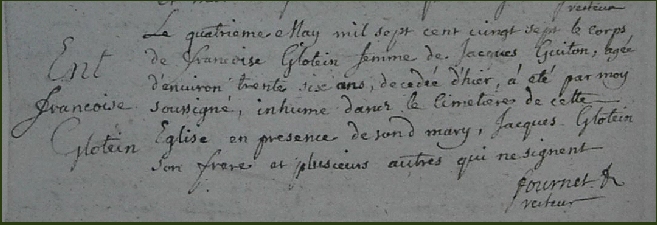 recteur
Le quatrieme May mil sept cent vingt sept le corps
Ent
de francoise Glotein femme de Jacques Guiton, agée
d'environ trente six ans, decedé d'hier, a eté par moy
francoise
soussigné, inhume dans le Cimetiere de cette
Glotein
Eglise en presence de sond mary, Jacques Glotein
son frere et plusieurs autres qui ne signent
fournet
recteur